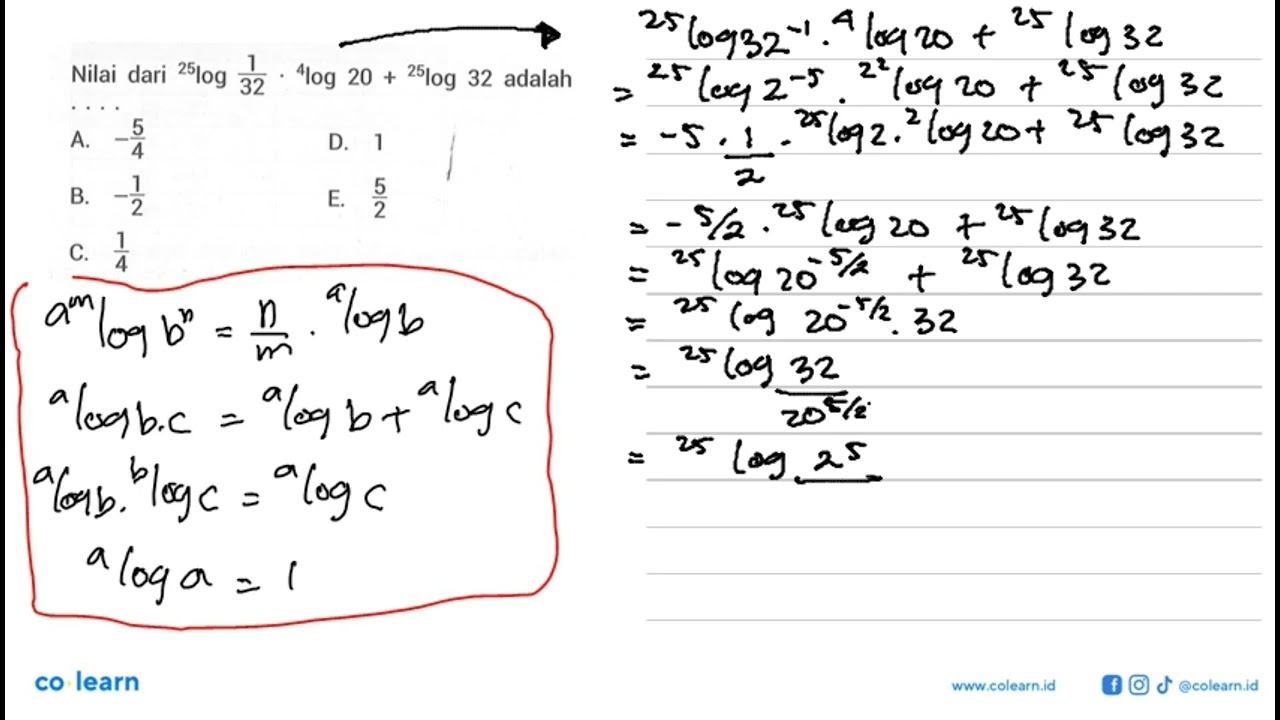 Nilai dari ²⁵log 1/32 · ⁴log 20 + ²⁵log 32 adalah
....
A. -5/4
B. -1/2
C. 1/4
D. 1
E. 5/2
a^m log b^n = n/m · ᵃlog b
ᵃlog b.c = ᵃlog b + ᵃlog c
ᵃlog b. ᵇlog c = ᵃlog c
ᵃlog a = 1
²⁵log 32⁻¹ · ⁴log 20 + ²⁵log 32
= ²⁵log 2⁻⁵ · 2² log 20 + ²⁵log 32
= -5 · 1/2 · ²⁵log 2 · ²log 20 + ²⁵log 32
= -5/2 · ²⁵log 20 + ²⁵log 32
= ²⁵log 20^-5/2 + ²⁵log 32
= ²⁵log 20^-5/2 . 32
= ²⁵log 32/20^5/2
= ²⁵log 2⁵
co learn
www.colearn.id
@colearn.id